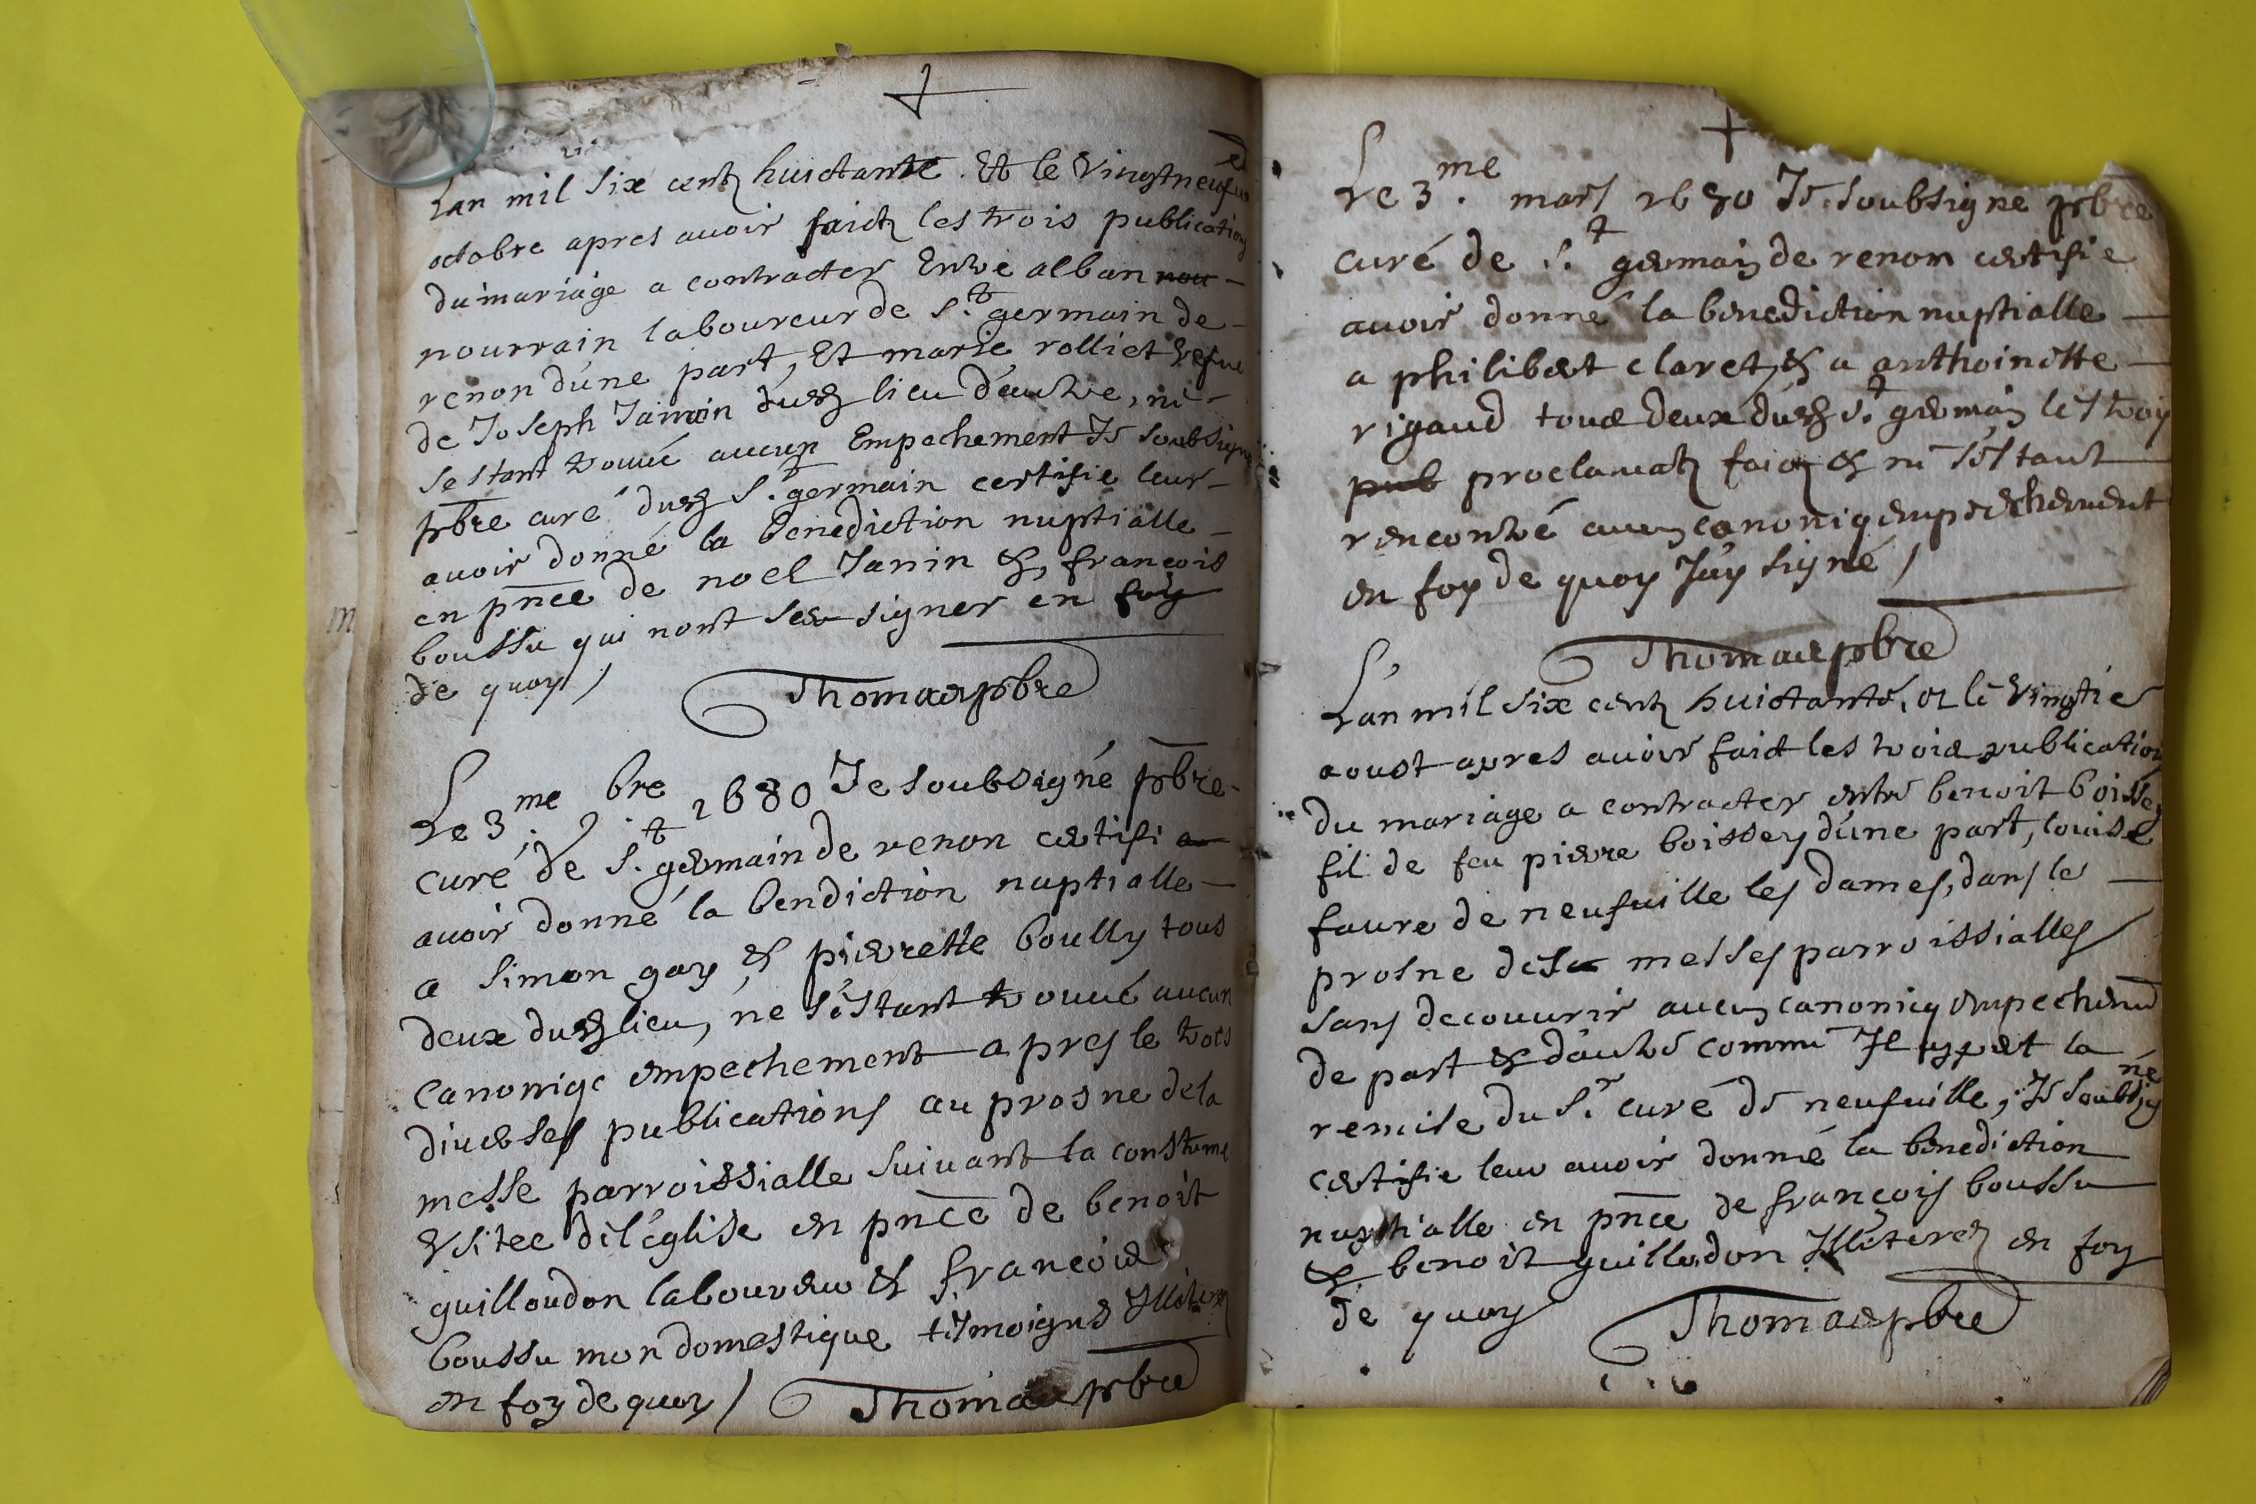 Lan mil six centz huictante. Et le vingtneufue
octobre apres avoir faictz les trois publications
du mariage a contracter Entre alban nou
nourrain laboureur de St. germain de
renon dúne part, Et marie rolliet vefue
de Joseph Jamin dudt lieu dáutre, ne
sestant trouué aucun Empechement Je soubsigne
pbre curé dudt St. germain certifie leur
auoir donné la benediction nuptialle
en pnce de noel Janin &, françois
boussu qui nont sceu signer en foy
de quoy /
Thomas pbre
Le 3.me 9.bre 1680 Je soubsigné pbre
curé de St. germain de renon certifi
auoir donné la bendiction nuptialle
a simon gay & pierrette boully tous
deux dudt lieu, ne séstant trouué aucun
Canoniqe empechement apres le trois
diuerses publications au prosne dela
messe parroissialle suiuant la constume
vsitee dé l'église en pnce de benoit
guilloudon laboureur & françois
boussu mon domestique témoigns Illiterez
en foy de quoy / Thomas pbre
Le 3.me mars 1680 Je soubsigne pbre
curé de St. germain de renon certifie
auoir donné la benediction nuptialle
a philibert claret, & a anthoinette
rigaud tous deux dudt St. germain les trois
pub proclamatz faictz & ne séstant
rencontré aucun canoniq empeschement
en foy de quoy Jáy signé /
Thomas pbre
L'an mil six centz huictante, et le vingties
aoust apres auoir faict les trois publications
du mariage a contracter entre benoit boissey
fil de feu pierre boissey dúne part, louise
faure de neufuille les dames, dans le
prosne des messes parroissialles
sans decouurir aucun canoniq empechemt
de part & dáutre comme Il appert la
remise du Sr. curé de neufuille, Je soubsigné
certifie leur auoir donné la benediction
nuptialle en pnce de françois boussu
& benoit guillodon Illiterez en foy
de quoy Thomas pbre